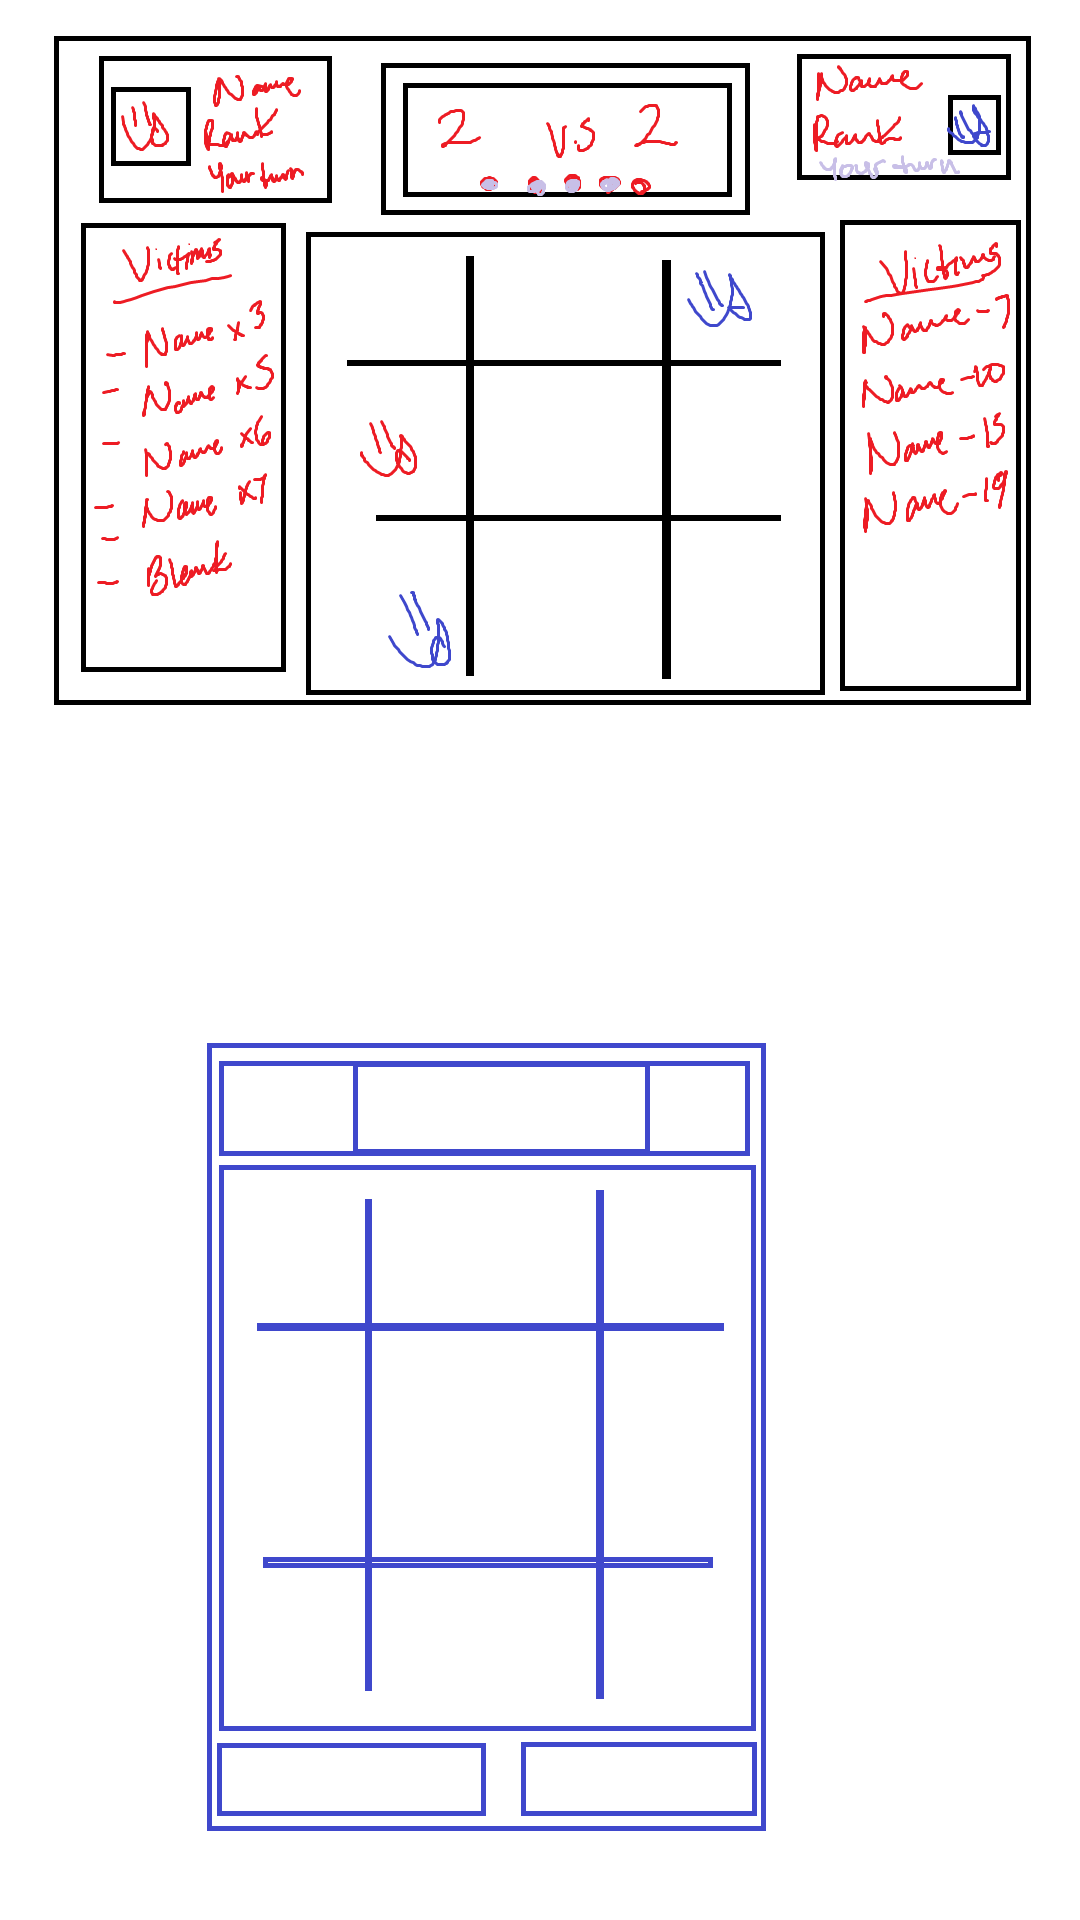 Name
Rank
Your turn
2 v.s 2
Name
Rank
Your turn
Victims
- Name x3
- Name x5
- Name x6
- Name x7
-
- Blank
Victims
Name - 7
Name - 10
Name - 15
Name - 19